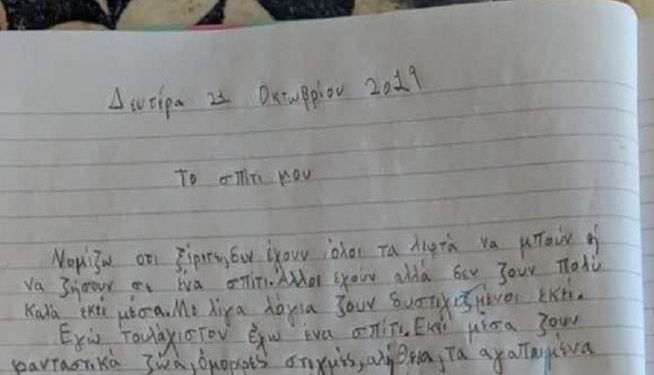 Δευτέρα 21 Οκτωβρίου 2019
Το σπίτι μου
Νομίζω οτι ξέρετε, δεν έχουν όλοι τα λεφτά να μπούν ή
να ζήσουν σε ένα σπίτι. Άλλοι έχουν αλλά δεν ζουν πολύ
καλά εκεί μέσα. Με λίγα λόγια ζουν δυστιχιζμένοι εκεί.
Εγώ τουλάχιστον έχω ένα σπίτι. Εκεί μέσα ζουν
φανταστικά ζώα, όμορφες στιγμές, αλήθεια, τα αγαπημένα